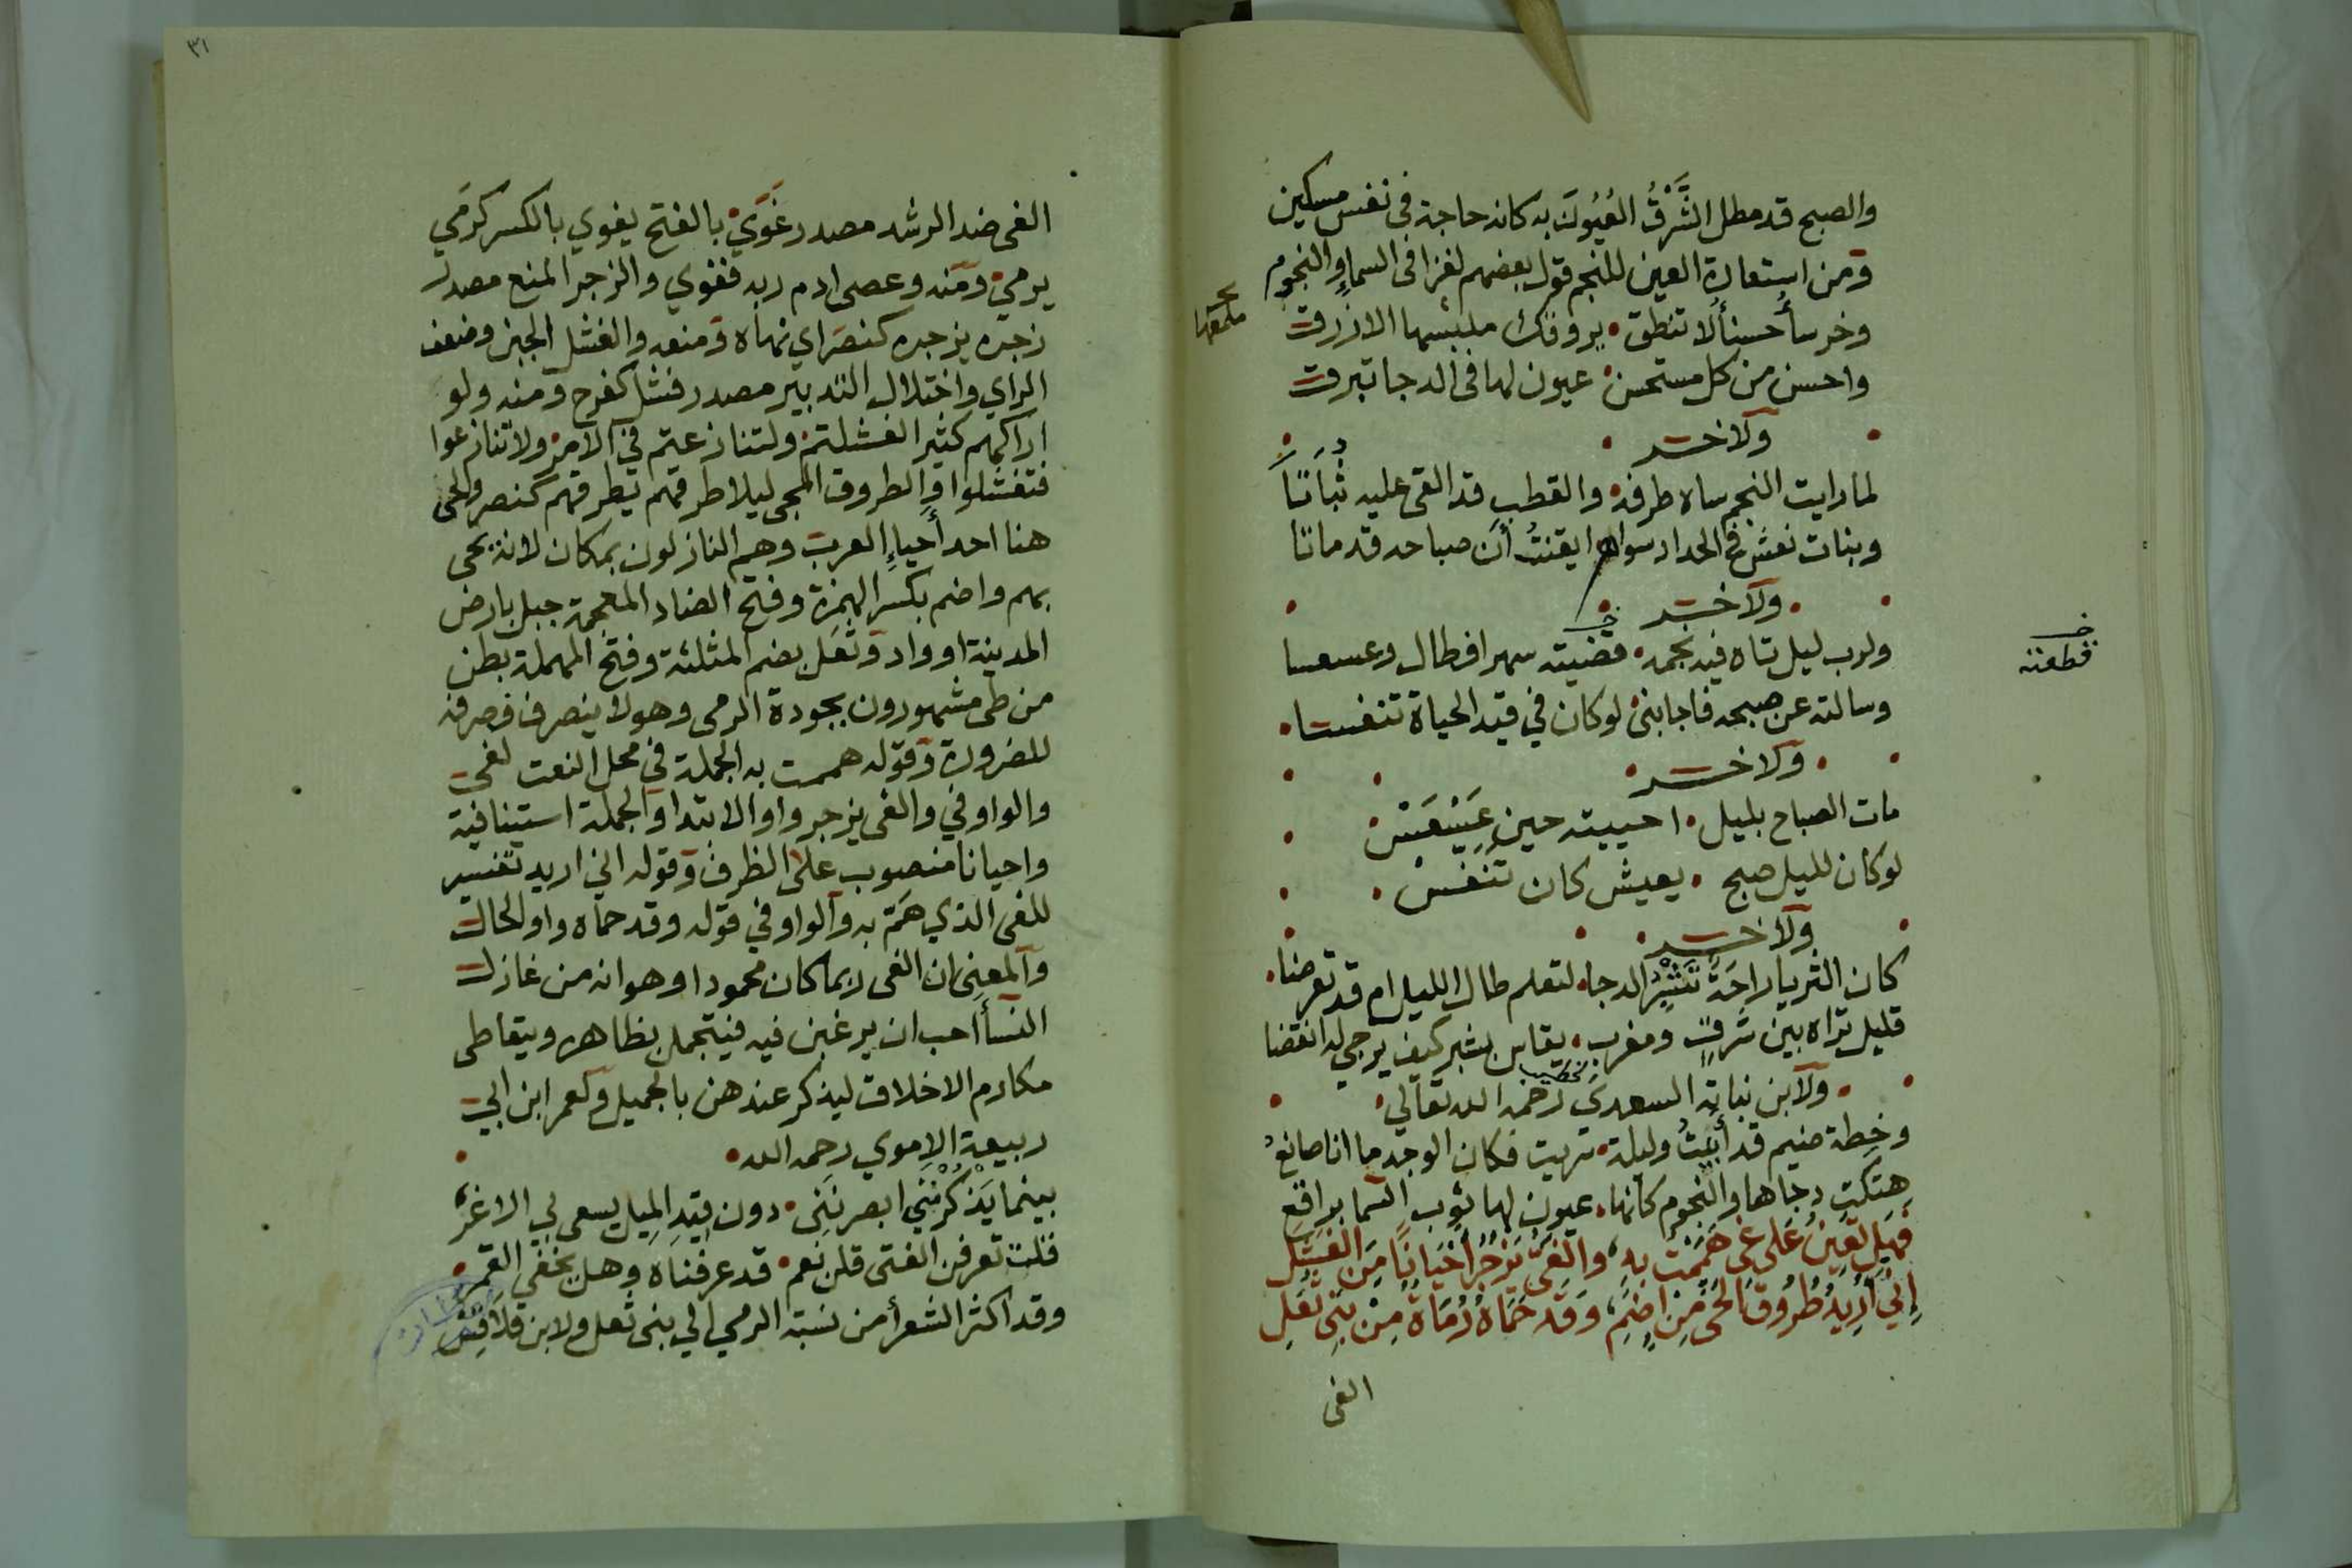 والصبح قد مطل الشَّرْقُ العُيُونَ به كانه حاجة فى نفس مسكين
ومن استعارة العين للنجم قول بعضهم لغزا فى السماء والنجوم
وخرسأ حسنأ لا تنطق • يروقك ملبسها الازرق
واحسن من كل مستحسن • عيون لها فى الدجا تبرق
ولاخر
لما رايت النجم ساه طرفه • والقطب قد القى عليه ثُبَاتًا
وبنات نعش فى الحداد سوافر ايقنتُ أن صباحه قد ماتا
ولاخر
ولرب ليل تاه فيه نجمه • قضيته سهرا فطال وعسعسا
فقطعته
وسالته عن صبحه فاجابنى • لو كان في قيد الحياة تنفسا •
ولاخر
مات الصباح بليل • احييته حين عَسْعَسْ
لو كان لليل صبح • يعيش كان تنَفسْ •
ولاخر
كان الثريا راحَةٌ تَشْبُرُ الدجا • لتعلم طال الليل ام قد تعرضا •
قليل تراه بين شرقٍ ومغرب • يقاس بشبر كيف يرجى له انقضا
• ولابن نباتة السعدي رحمه الله تعالي •
وخطة ضيم قد أبَيْتُ وليلة • سريت فكان الوجد ما انا صانعُ
هتكت دجاها والنجوم كأنها • عيون لها ثوب السما براقع
فهل تعينُ عَلى غى هَمَمْت بِهِ ، والغىّ يَزْجُرُ احْيَانًا مِنَ الفَشَلِ
إني أُرِيدُ طُرُوقَ الحَىّ مِن اِضَمٍ ، وَقَد حَمَاهُ رُمَاةٌ مِنْ بَنِي ثُعَلِ
الغى
٣١
الغى ضد الرشد مصدر غَوَيْ بالفتح يغوي بالكسر كرَمي
يرميْ ومنه وعصى ادم ربه فغوي والزجر المنع مصدر
زجره يزجره كنصَر اي نهاه ومنعه والفشل الجبن وضعف
الراي واختلال التدبير مصدر فشل كفرح ومنه ولو
اراكهم كثيرا لفشلتم • ولتنازعتم في الامر • ولا تنازعوا
فتفشلوا والطروق المجى ليلا طرقهم يطرقهم كنصر والحى
هنا احد أحياء العرب وهم النازلون بمكان لانه يحى
بهم واضم بكسر الهمزة وفتح الضاد المعجمة جبل بارض
المدينة او واد وثعَل بضم المثلثة وفتح المهملة بطن
من طى مشهورون بجودة الرمى وهو لا ينصرف فصرفه
للضرورة وقوله هممت به الجملة في محل النعت لغى
والواو في والغى يزجر واو الابتدا والجملة استينافية
واحيانا منصوب على الظرف وقوله اني اريد تفسير
للغى الذي هَمّ به والواو في قوله وقد حماه واو الحال
والمعنى ان الغى ربما كان محمودا وهو انه من غازل
النسأ احب ان يرغبن فيه فيتجمل بظاهره ويتعاطى
مكارم الاخلاق ليذكر عندهن بالجميل ولعمر ابن ابي
ربيعة الاموي رحمه الله •
بينما يَذْكُرْنَنِي ابصرنَنِى • دون قيدِ المِيل يسعى بي الاغر
قلن تعرفن الفتى قلن نعم • قد عرفناه وهل يخفي القمر •
وقد اكثر الشعرأ من نسبة الرمي الي بنى ثعل ولابن قلاقس